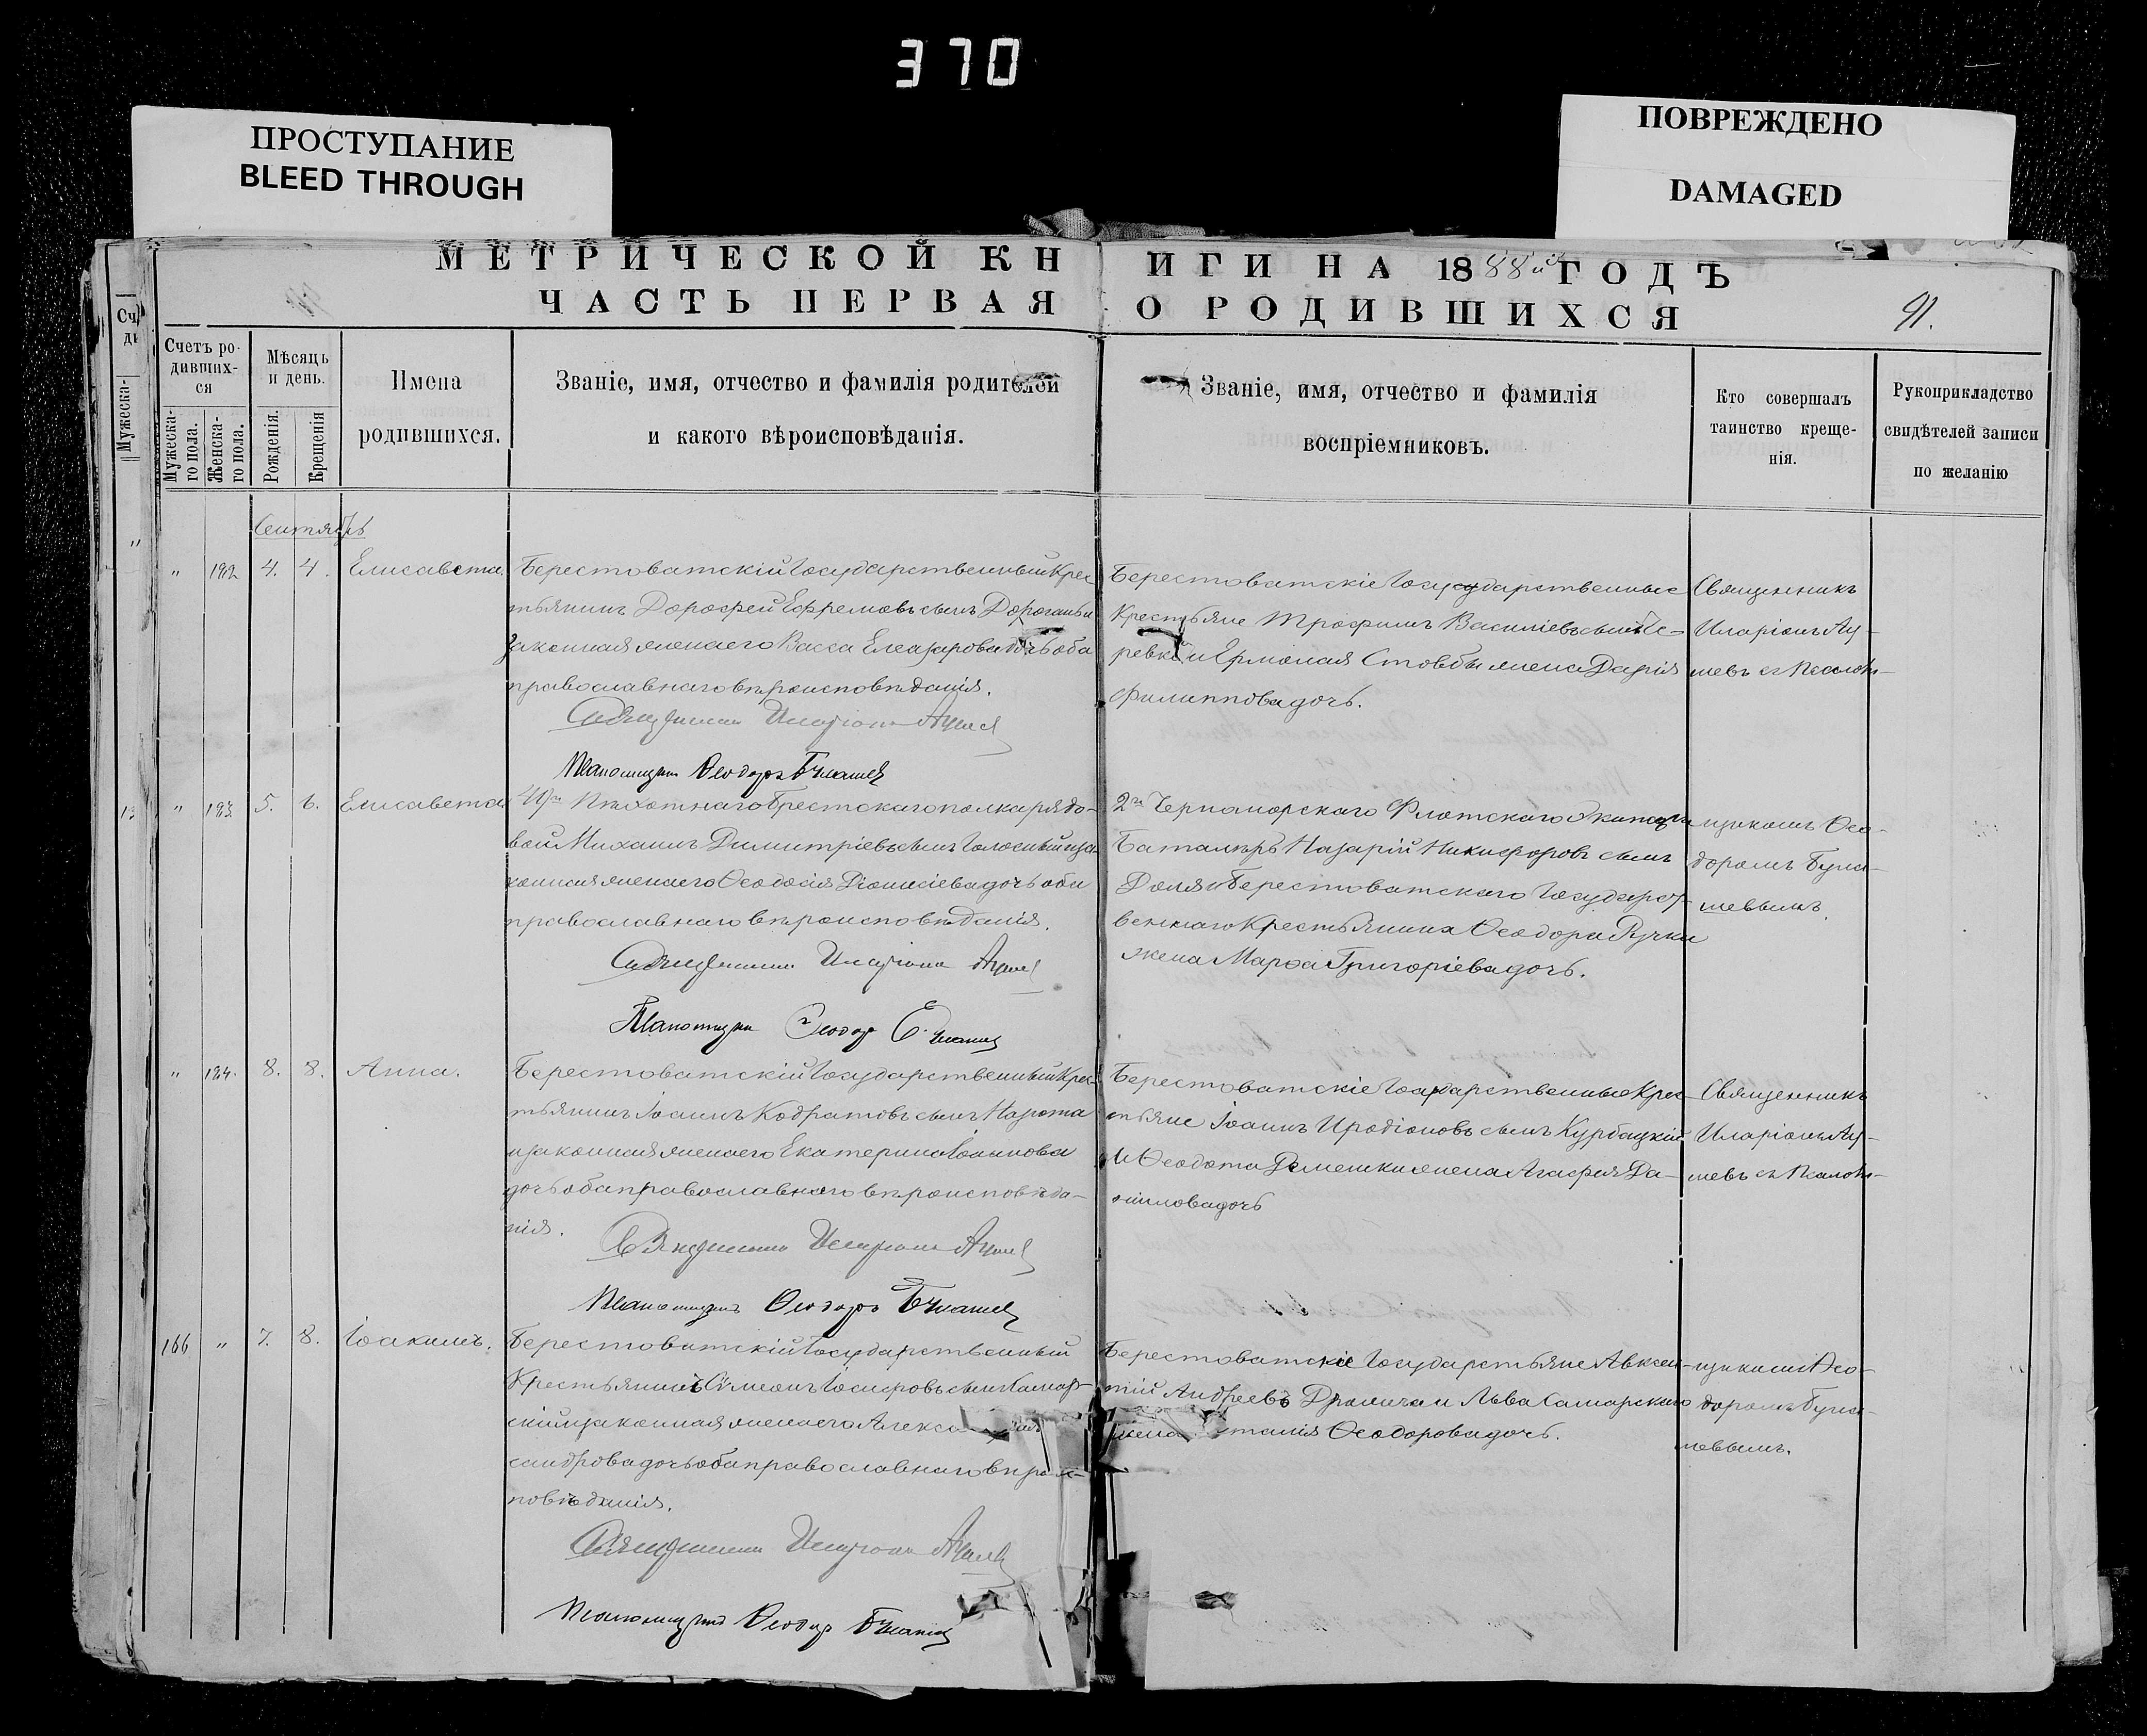 370
ПРОСТУПАНИЕ
BLEED THROUGH
ПОВРЕЖДЕНО
DAMAGED
МЕТРИЧЕСКОЙ КНИГИ НА 1888й ГОДЪ
ЧАСТЬ ПЕРВАЯ О РОДИВШИХСЯ
91.
Счетъ ро-
дивших-
ся
Мужеска-
го пола.
Женска-
го пола.
Мѣсяцъ
и день.
Рожденія.
Крещенія
Имена
родившихся.
Званіе, имя, отчество и фамилія родителей
и какого вѣроисповѣданія.
Званіе, имя, отчество и фамилія
воспріемниковъ.
Кто совершалъ
таинство креще-
нія.
Рукоприкладство
свидѣтелей записи
по желанію
Мужеска-
Сентябрь
" 192 4. 4. Елисавета.
Берестоватскій Государственный Крес
тьянинъ Дорофей Ефремовъ сынъ и
законная жена его Васса Елеазарова дочь оба
православнаго вѣроисповѣданія.
Священникъ Иларіонъ
Псаломщикъ Ѳеодоръ
Берестоватскіе Государственные
Крестьяне Трофимъ Василіевъ сынъ
и Ермолая Стовбы жена Дарія
Филиппова дочь.
Священникъ
Иларіонъ Ау-
шевъ съ Псалом-
" 193 5. 6. Елисавета
Пѣхотнаго Брестскаго полка рядо-
вой Михаилъ Димитріевъ сынъ и за-
конная жена его Ѳеодосія Діонисіева дочь оба
православнаго вѣроисповѣданія.
Священникъ Иларіонъ
Псаломщикъ Ѳеодоръ
2го Черноморскаго Флотскаго Экипажа
Баталеръ Назарій Никифоровъ сынъ
Доля и Берестоватскаго Государст-
веннаго Крестьянина Ѳеодора Ручки
жена Марфа Григоріева дочь.
щикомъ Ѳео-
доромъ
" 194. 8. 8. Анна.
Берестоватскій Государственный Крес-
тьянинъ Іоаннъ Кодратовъ сынъ
и законная жена его Екатерина Іоаннова
дочь оба православнаго вѣроисповѣда-
нія.
Священникъ Иларіонъ
Псаломщикъ Ѳеодоръ
Берестоватскіе Государственные Крес-
тьяне Іоаннъ Иродіоновъ сынъ Курбацкій
и Ѳеодота Демешки жена Агафія Да-
ніилова дочь
Священникъ
Иларіонъ Ау-
шевъ съ Псалом-
166 " 7. 8. Іоакимъ.
Берестоватскій Государственный
Крестьянинъ Сѵмеонъ Іосифовъ сынъ
скій и законная жена его
сандрова дочь оба православнаго вѣроис-
повѣданія.
Священникъ Иларіонъ
Псаломщикъ Ѳеодоръ
Берестоватскіе Авксен-
тій Андреевъ и Льва Самарскаго
жена Ѳеодорова дочь.
щикомъ Ѳео-
доромъ